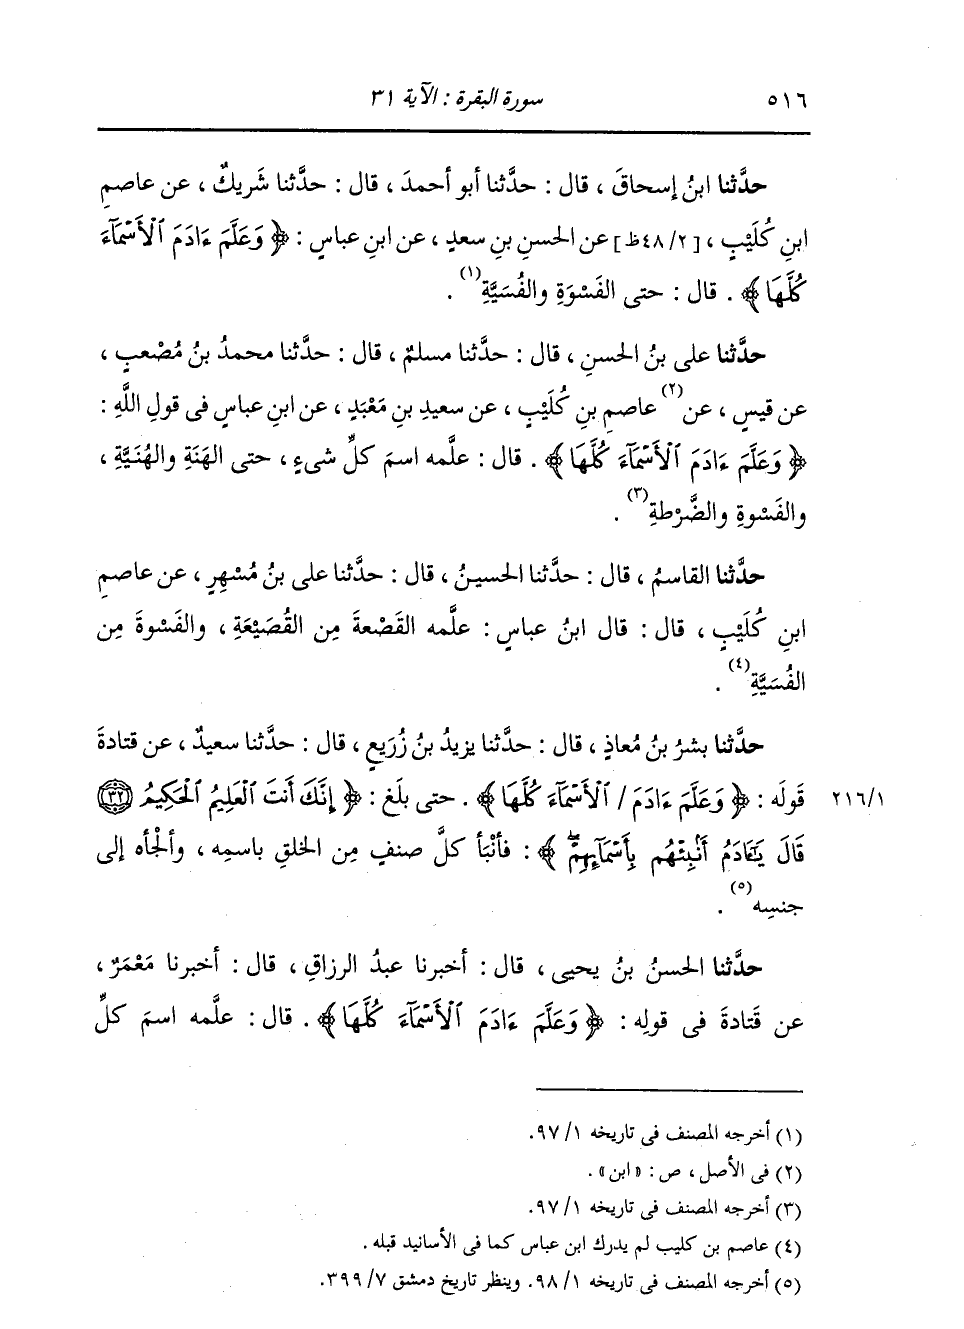 ٥١٦ سورة البقرة : الآية ٣١
حدَّثنا ابنُ إسحاقَ ، قال : حدَّثنا أبو أحمدَ ، قال : حدَّثنا شَريكٌ ، عن عاصمِ
ابنِ كُلَيْبٍ ، [٤٨/٢ظ] عن الحسنِ بنِ سعدٍ ، عن ابنِ عباسٍ : ﴿ وَعَلَّمَ ءَادَمَ ٱلْأَسْمَآءَ
كُلَّهَا ﴾ . قال : حتى الفَسْوَةِ والفُسَيَّةِ(١) .
حدَّثنا على بنُ الحسنِ ، قال : حدَّثنا مسلمٌ ، قال : حدَّثنا محمدُ بنُ مُصْعبٍ ،
عن قيسٍ ، عن(٢) عاصمِ بنِ كُلَيْبٍ ، عن سعيدِ بنِ مَعْبَدٍ ، عن ابنِ عباسٍ فى قولِ اللَّهِ :
﴿ وَعَلَّمَ ءَادَمَ ٱلْأَسْمَآءَ كُلَّهَا ﴾ . قال : علَّمه اسمَ كلِّ شىءٍ ، حتى الهَنَةِ والهُنَيَّةِ ،
والفَسْوةِ والضَّرْطةِ(٣) .
حدَّثنا القاسمُ ، قال : حدَّثنا الحسينُ ، قال : حدَّثنا على بنُ مُسْهِرٍ ، عن عاصمِ
ابنِ كُلَيْبٍ ، قال : قال ابنُ عباسٍ : علَّمه القَصْعةَ مِن القُصَيْعَةِ ، والفَسْوةَ مِن
الفُسَيَّةِ(٤) .
حدَّثنا بشرُ بنُ مُعاذٍ ، قال : حدَّثنا يزيدُ بنُ زُرَيعٍ ، قال : حدَّثنا سعيدٌ ، عن قتادةَ
٢١٦/١ قولَه : ﴿ وَعَلَّمَ ءَادَمَ / ٱلْأَسْمَآءَ كُلَّهَا ﴾ . حتى بلَغ : ﴿ إِنَّكَ أَنتَ ٱلْعَلِيمُ ٱلْحَكِيمُ ٣٢
قَالَ يَٰٓـَٔادَمُ أَنۢبِئْهُم بِأَسْمَآئِهِمْ ۖ ﴾ : فأنْبَأ كلَّ صنفٍ مِن الخلقِ باسمِه ، وألْجأه إلى
جنسِه(٥) .
حدَّثنا الحسنُ بنُ يحيى ، قال : أخبرنا عبدُ الرزاقِ ، قال : أخبرنا مَعْمَرٌ ،
عن قَتادةَ فى قولِه : ﴿ وَعَلَّمَ ءَادَمَ ٱلْأَسْمَآءَ كُلَّهَا ﴾ . قال : علَّمه اسمَ كلِّ
(١) أخرجه المصنف فى تاريخه ٩٧/١.
(٢) فى الأصل ، ص : « ابن » .
(٣) أخرجه المصنف فى تاريخه ٩٧/١.
(٤) عاصم بن كليب لم يدرك ابن عباس كما فى الأسانيد قبله .
(٥) أخرجه المصنف فى تاريخه ٩٨/١. وينظر تاريخ دمشق ٣٩٩/٧.